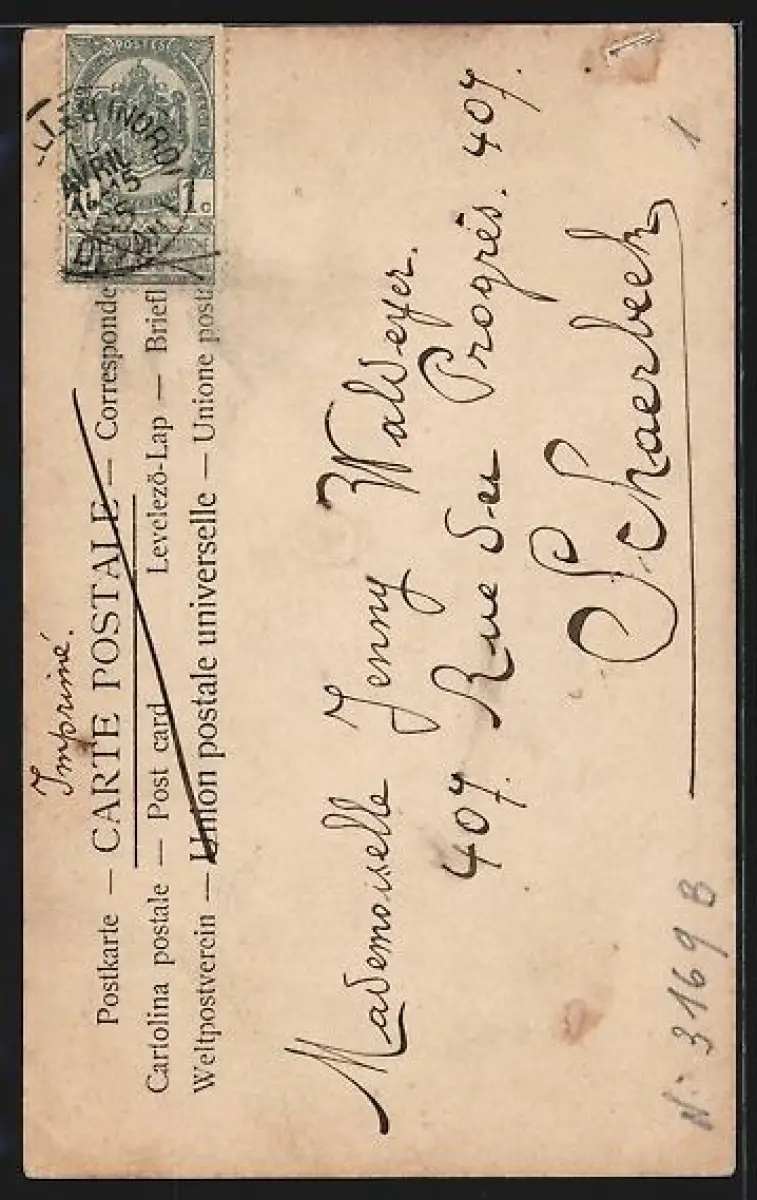 Imprimé.
Postkarte — CARTE POSTALE — Corresponde
Cartolina postale — Post card Levelező-Lap — Briefl
Weltpostverein — Union postale universelle — Unione posta
POSTES
1 c
(NORD)
AVRIL
14-15
Mademoiselle Jenny Waldeyer.
407. Rue du Progrès. 407.
Schaerbeek
1
N. 3169 B